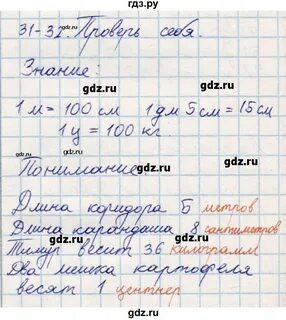 гдз.ру
31-32. Проверь себя.
Знание:
1 м = 100 см 1 дм 5 см = 15 см
1 ц = 100 кг.
Понимание
Длина коридора 5 метров
Длина карандаша 8 сантиметров
Тимур весит 36 килограмм
Два мешка картофеля
весят 1 центнер